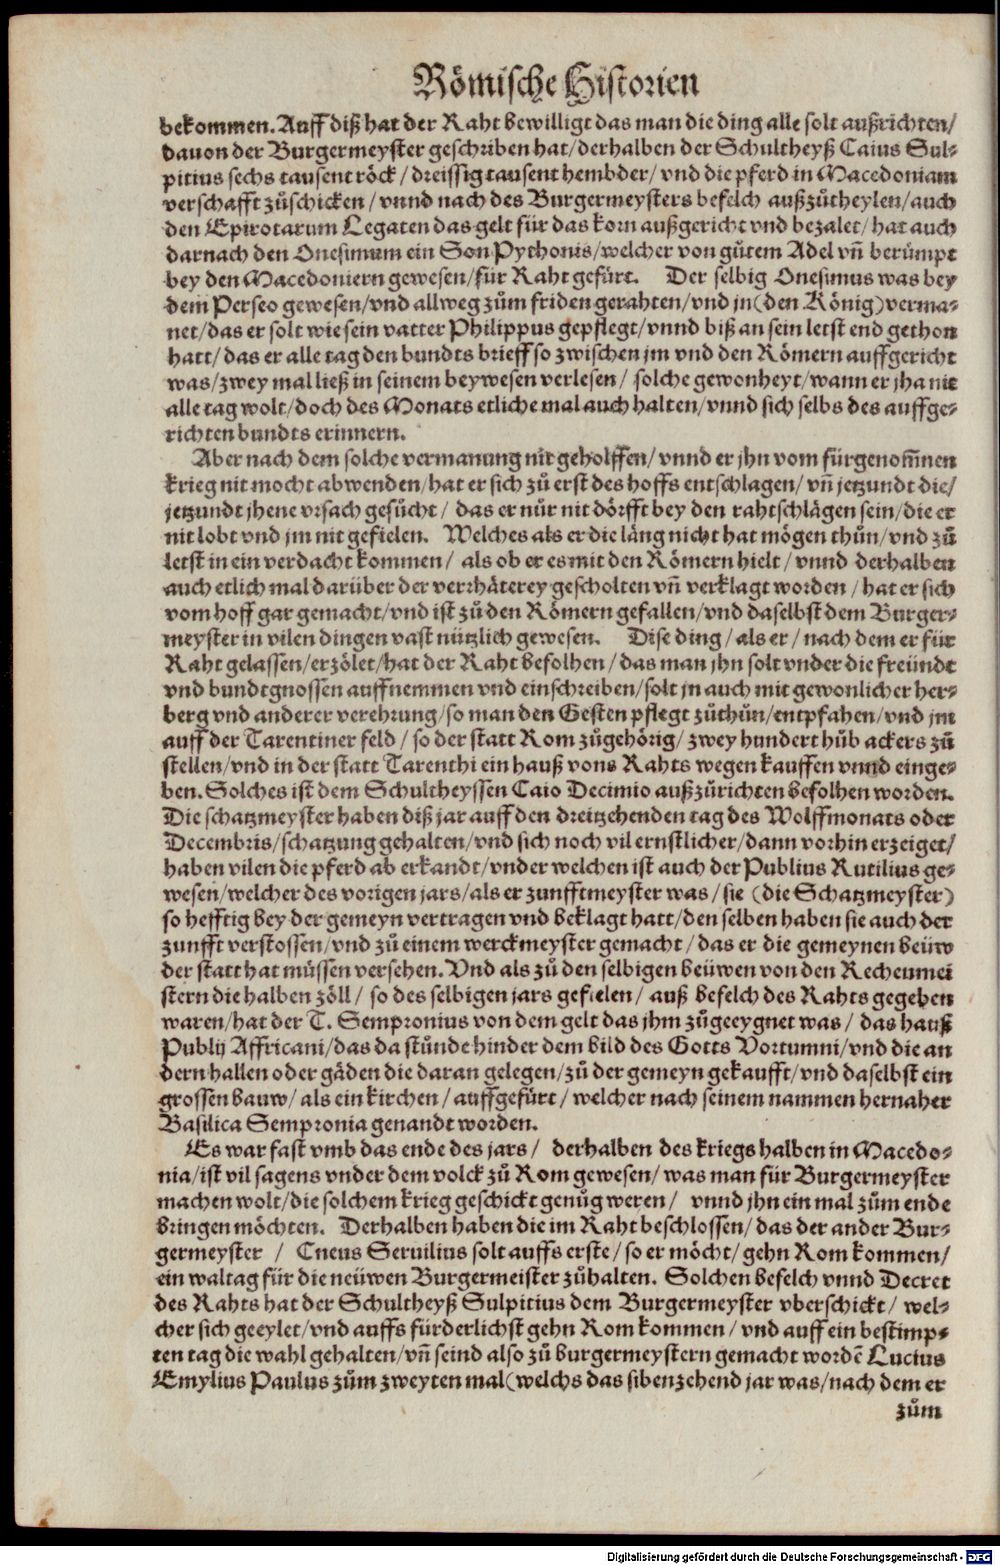 Römische Historien
bekommen. Auff diß hat der Raht bewilligt das man die ding alle solt außrichten/
dauon der Burgermeyster geschriben hat/derhalben der Schultheyß Caius Sul⸗
pitius sechs tausent röck / dreissig tausent hembder/ vnd die pferd in Macedoniam
verschafft zůschicken / vnnd nach des Burgermeysters befelch außzůtheylen/auch
den Epirotarum Legaten das gelt für das korn außgericht vnd bezalet/ hat auch
darnach den Onesimum ein Son Pythonis/welcher von gůtem Adel vñ berümpt
bey den Macedoniern gewesen/für Raht gefürt. Der selbig Onesimus was bey
dem Perseo gewesen/vnd allweg zům friden gerahten/vnd jn(den König)verma⸗
net/das er solt wie sein vatter Philippus gepflegt/vnnd biß an sein letst end gethon
hatt/das er alle tag den bundts brieff so zwischen jm vnd den Römern auffgericht
was/zwey mal ließ in seinem beywesen verlesen/ solche gewonheyt/wann er jha nit
alle tag wolt/doch des Monats etliche mal auch halten/vnnd sich selbs des auffge⸗
richten bundts erinnern.
Aber nach dem solche vermanung nit geholffen/ vnnd er jhn vom fürgenom̃nen
krieg nit mocht abwenden/hat er sich zů erst des hoffs entschlagen/ vñ jetzundt die/
jetzundt jhene vrsach gesůcht/ das er nůr nit dörfft bey den rahtschlägen sein/die er
nit lobt vnd jm nit gefielen. Welches als er die läng nicht hat mögen thůn/vnd zů
letst in ein verdacht kommen/ als ob er es mit den Römern hielt/ vnnd derhalben
auch etlich mal darüber der verrhäterey gescholten vñ verklagt worden / hat er sich
vom hoff gar gemacht/vnd ist zů den Römern gefallen/vnd daselbst dem Burger⸗
meyster in vilen dingen vast nützlich gewesen. Dise ding/ als er/ nach dem er für
Raht gelassen/erzölet/hat der Raht befolhen/das man jhn solt vnder die freündt
vnd bundtgnossen auffnemmen vnd einschreiben/solt jn auch mit gewonlicher her⸗
berg vnd anderer verehrung/so man den Gesten pflegt zůthůn/entpfahen/vnd jm
auff der Tarentiner feld/ so der statt Rom zůgehörig/ zwey hundert hůb ackers zů
stellen/vnd in der statt Tarenthi ein hauß vons Rahts wegen kauffen vnnd einge⸗
ben. Solches ist dem Schultheyssen Caio Decimio außzůrichten befolhen worden.
Die schatzmeyster haben diß jar auff den dreitzehenden tag des Wolffmonats oder
Decembris/schatzung gehalten/vnd sich noch vil ernstlicher/dann vorhin erzeiget/
haben vilen die pferd ab erkandt/vnder welchen ist auch der Publius Rutilius ge⸗
wesen/welcher des vorigen jars/als er zunfftmeyster was/sie (die Schatzmeyster)
so hefftig bey der gemeyn vertragen vnd beklagt hatt/den selben haben sie auch der
zunfft verstossen/vnd zů einem werckmeyster gemacht/das er die gemeynen beüw
der statt hat müssen versehen. Vnd als zů den selbigen beüwen von den Rechenmei
stern die halben zöll/ so des selbigen jars gefielen/ auß befelch des Rahts gegeben
waren/hat der T. Sempronius von dem gelt das jhm zůgeeygnet was/ das hauß
Publij Affricani/das da stůnde hinder dem bild des Gotts Vortumni/vnd die an
dern hallen oder gäden die daran gelegen/zů der gemeyn gekaufft/vnd daselbst ein
grossen bauw/ als ein kirchen/ auffgefürt/ welcher nach seinem nammen hernaher
Basilica Sempronia genandt worden.
Es war fast vmb das ende des jars/ derhalben des kriegs halben in Macedo⸗
nia/ist vil sagens vnder dem volck zů Rom gewesen/was man für Burgermeyster
machen wolt/die solchem krieg geschickt genůg weren/ vnnd jhn ein mal zům ende
bringen möchten. Derhalben haben die im Raht beschlossen/das der ander Bur⸗
germeyster / Cneus Seruilius solt auffs erste/so er möcht/gehn Rom kommen/
ein waltag für die neüwen Burgermeister zůhalten. Solchen befelch vnnd Decret
des Rahts hat der Schultheyß Sulpitius dem Burgermeyster vberschickt/ wel⸗
cher sich geeylet/vnd auffs fürderlichst gehn Rom kommen/ vnd auff ein bestimp⸗
ten tag die wahl gehalten/vñ seind also zů burgermeystern gemacht wordẽ Lucius
Emylius Paulus zům zweyten mal(welchs das sibenzehend jar was/nach dem er
zům
Digitalisierung gefördert durch die Deutsche Forschungsgemeinschaft - DFG